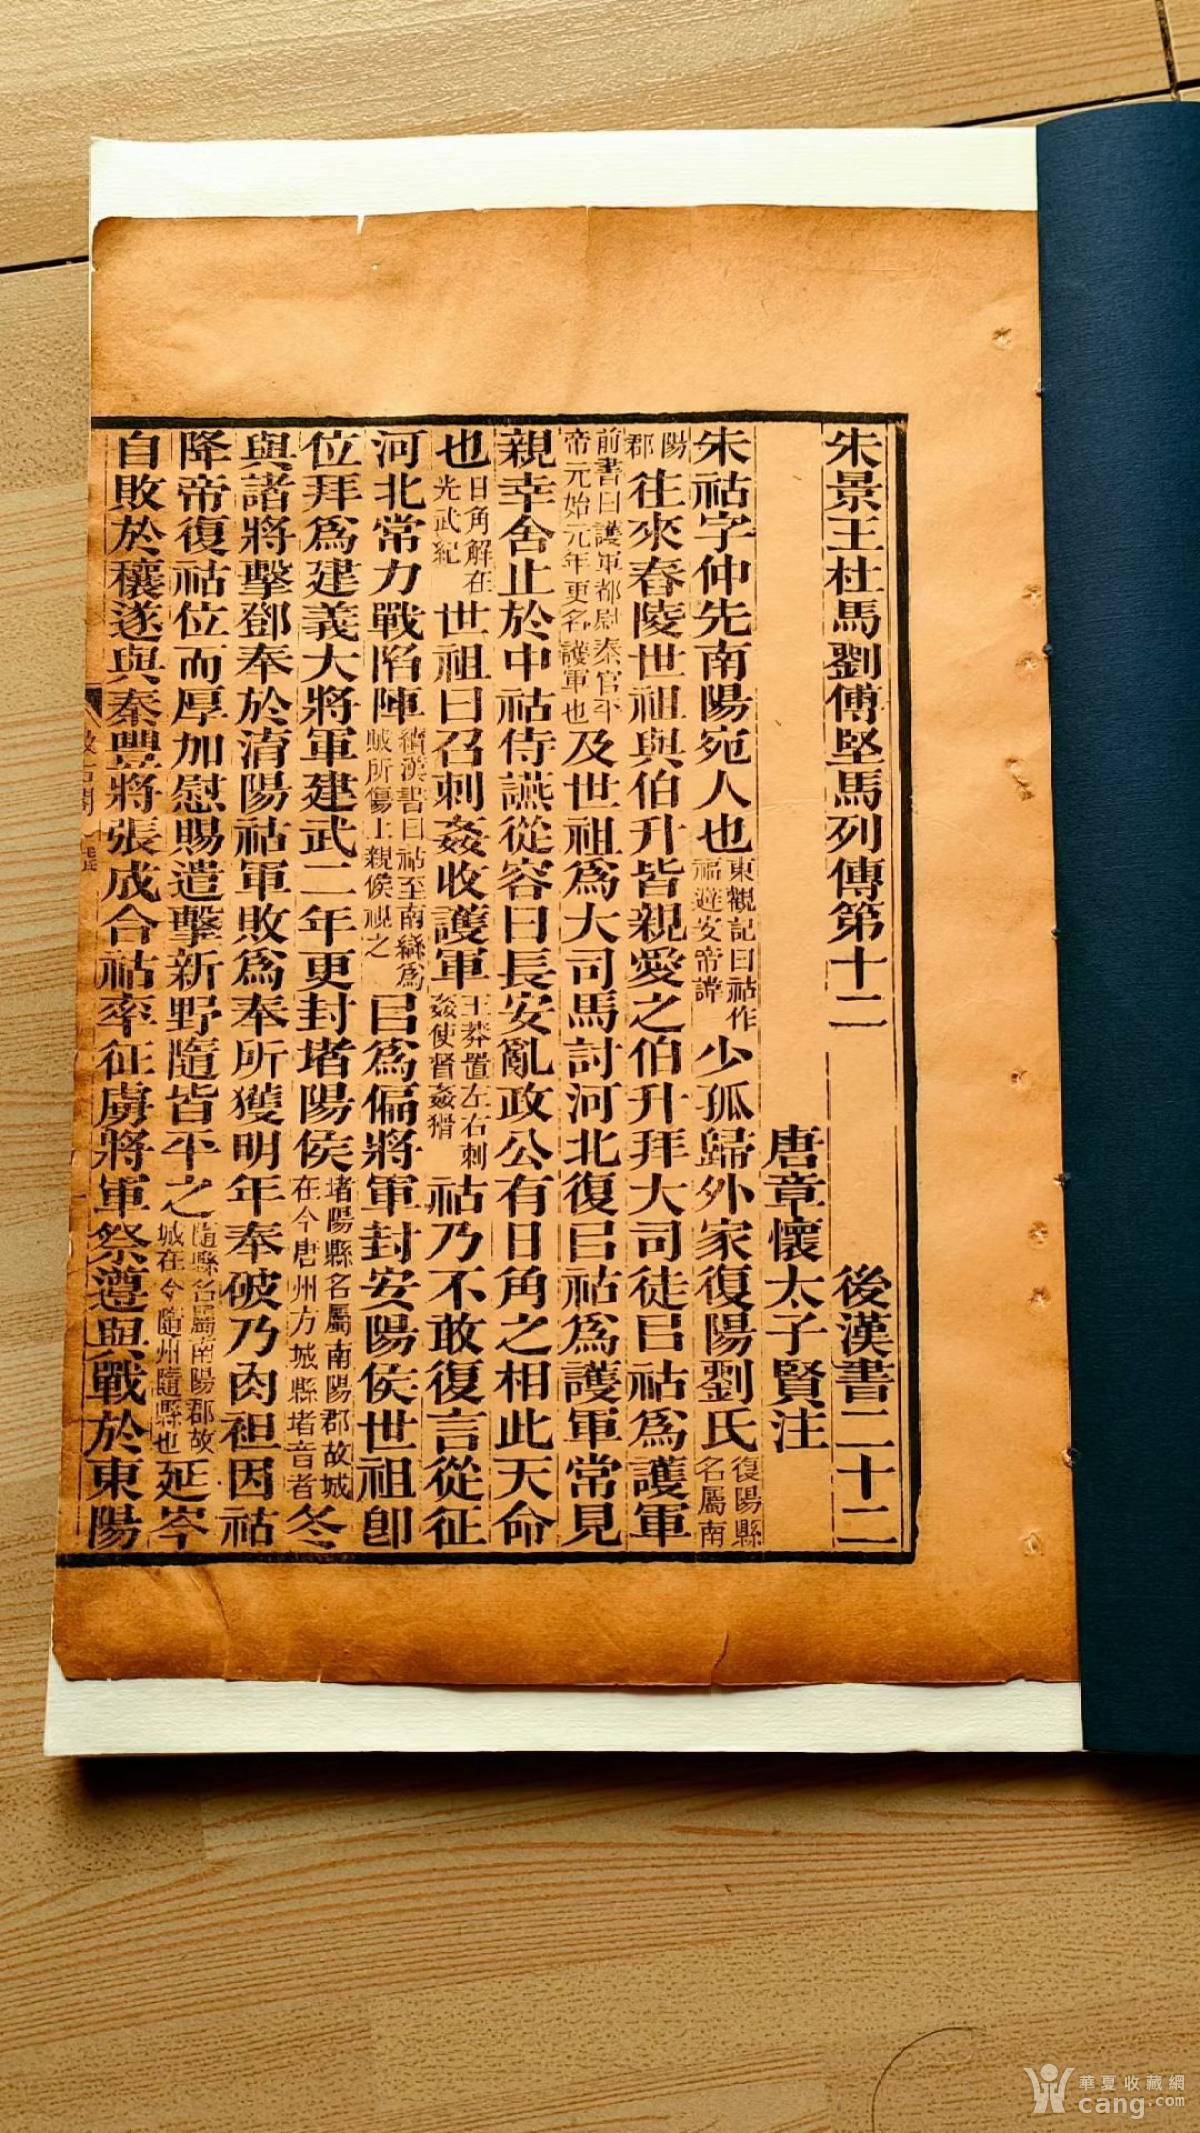 朱景王杜馬劉傅堅馬列傳第十二 後漢書二十二
唐章懷太子賢注
朱祜字仲先南陽宛人也東觀記曰祜作福避安帝諱少孤歸外家復陽劉氏復陽縣名屬南
陽郡往來舂陵世祖與伯升皆親愛之伯升拜大司徒㠯祜為護軍
前書曰護軍都尉秦官平帝元始元年更名護軍也及世祖為大司馬討河北復㠯祜為護軍常見
親幸舍止於中祜侍讌從容曰長安亂政公有日角之相此天命
也日角解在光武紀世祖曰召刺姦收護軍王莽置左右刺姦使督姦猾祜乃不敢復言從征
河北常力戰陷陣續漢書曰祜至南䜌為賊所傷上親候視之㠯為偏將軍封安陽侯世祖卽
位拜為建義大將軍建武二年更封堵陽侯堵陽縣名屬南陽郡故城在今唐州方城縣堵音者冬
與諸將擊鄧奉於淯陽祜軍敗為奉所獲明年奉破乃肉袒因祜
降帝復祜位而厚加慰賜遣擊新野隨皆平之隨縣名屬南陽郡故城在今隨州隨縣也延岑
自敗於穰遂與秦豐將張成合祜率征虜將軍祭遵與戰於東陽
華夏收藏網
cang.com